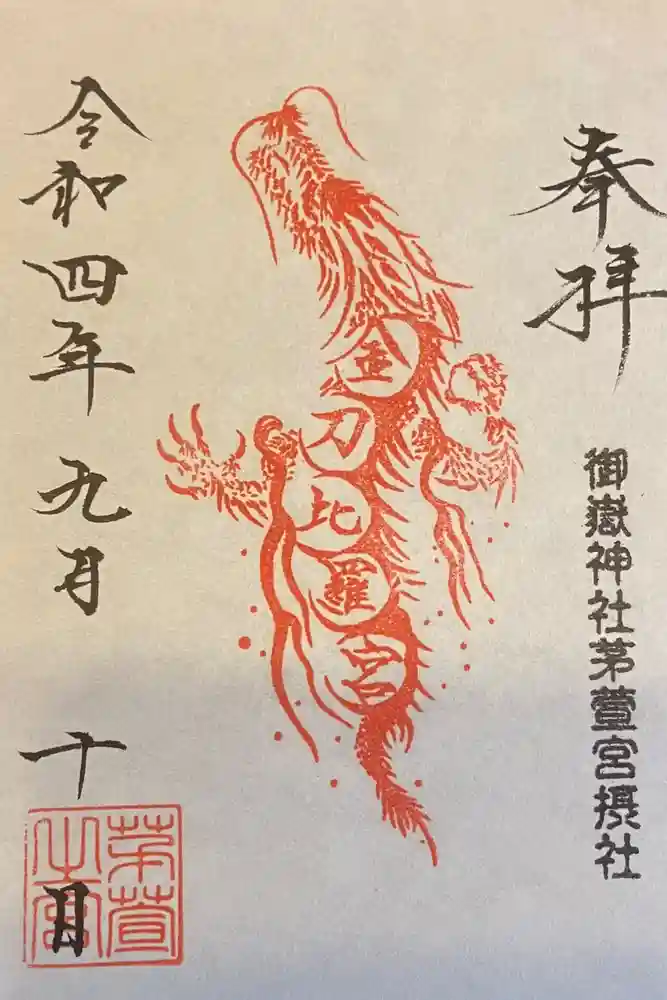 奉拝
御嶽神社茅萱宮摂社
金刀比羅宮
令和四年九月十日
茅萱
之宮